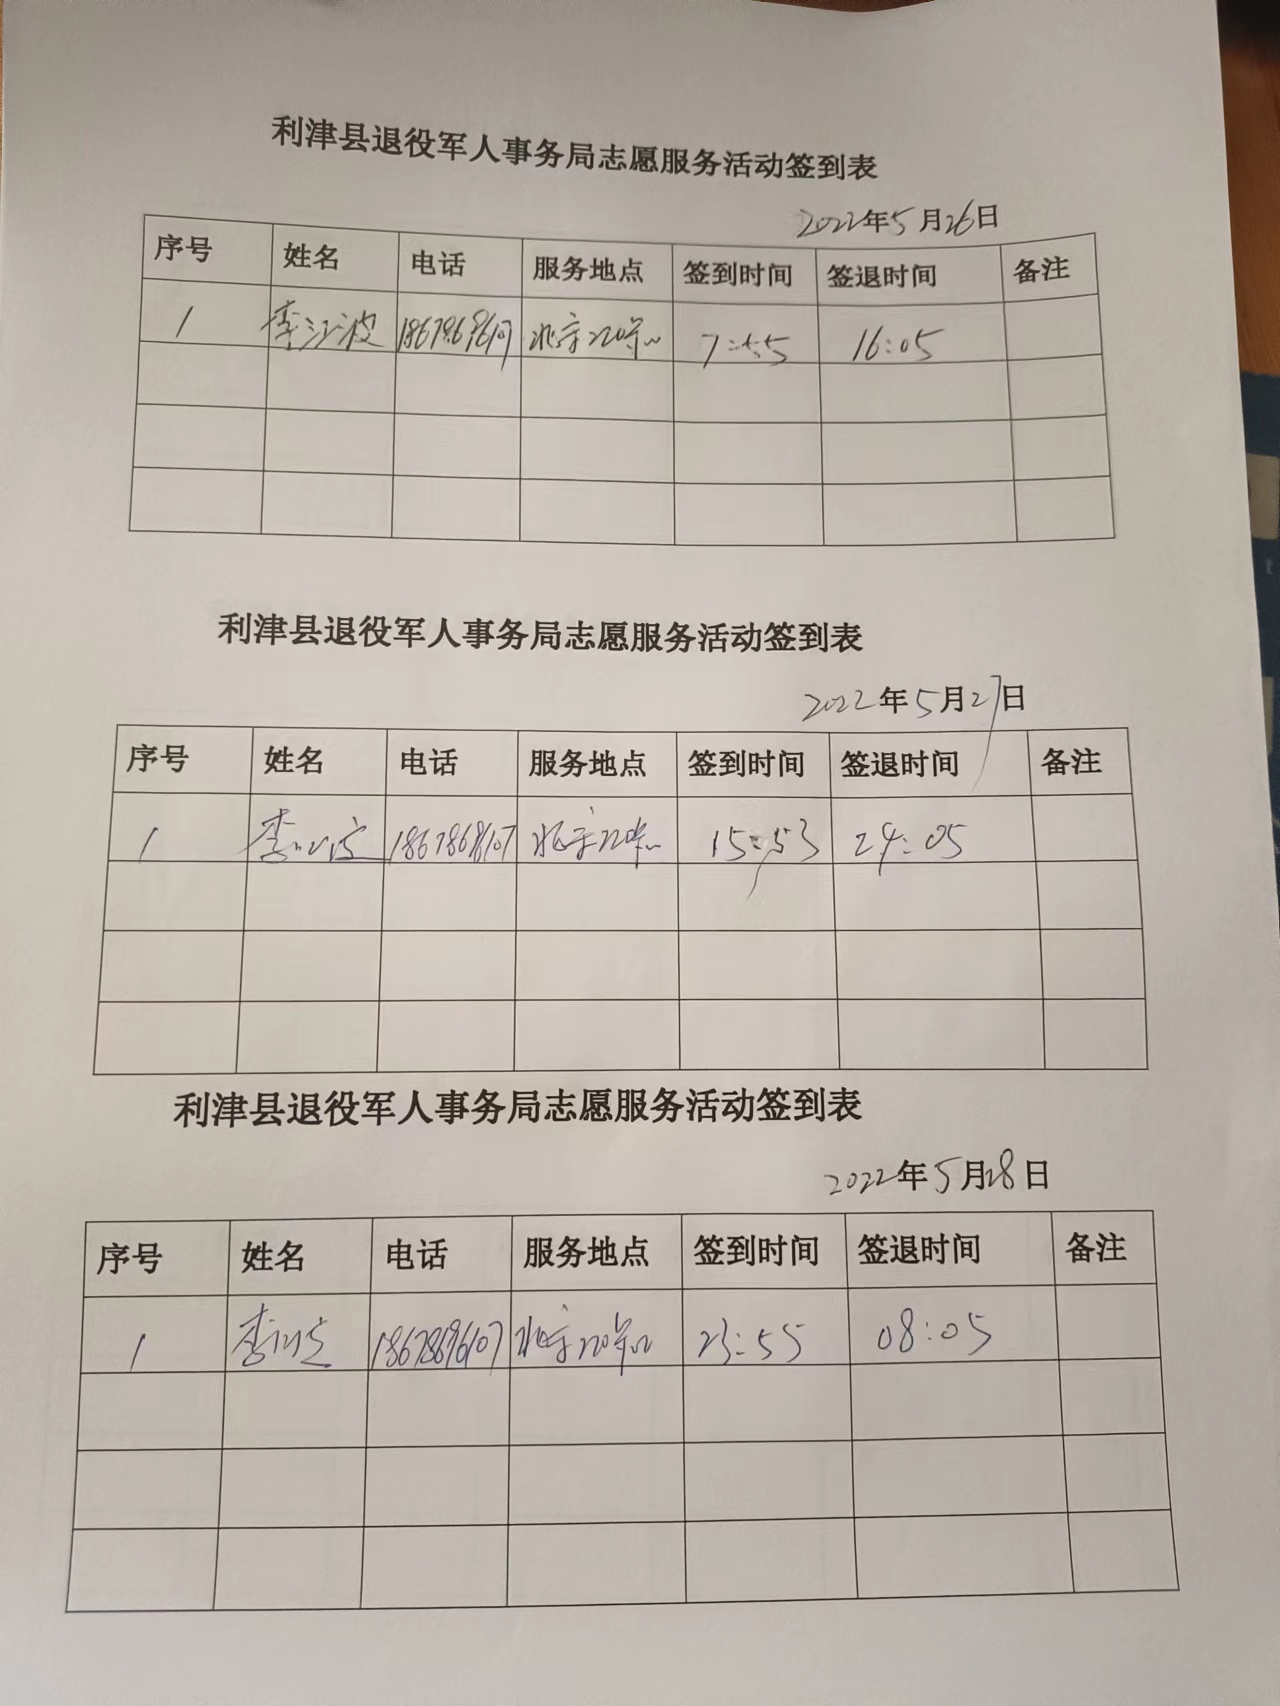 利津县退役军人事务局志愿服务活动签到表
2022年5月26日
序号 姓名 电话 服务地点 签到时间 签退时间 备注
1 李江波 18678696107 7:55 16:05
利津县退役军人事务局志愿服务活动签到表
2022年5月27日
序号 姓名 电话 服务地点 签到时间 签退时间 备注
1 李江波 15:53 24:05
利津县退役军人事务局志愿服务活动签到表
2022年5月28日
序号 姓名 电话 服务地点 签到时间 签退时间 备注
1 李江波 18678696107 23:55 08:05